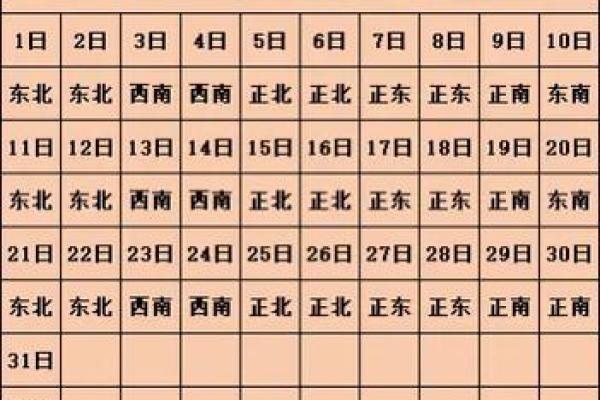 1日 2日 3日 4日 5日 6日 7日 8日 9日 10日
东北 东北 西南 西南 正北 正北 正东 正东 正南 东南
11日 12日 13日 14日 15日 16日 17日 18日 19日 20日
东北 东北 西南 西南 正北 正北 正东 正东 正南 东南
21日 22日 23日 24日 25日 26日 27日 28日 29日 30日
东北 东北 西南 西南 正北 正北 正东 正东 正南 正南
31日